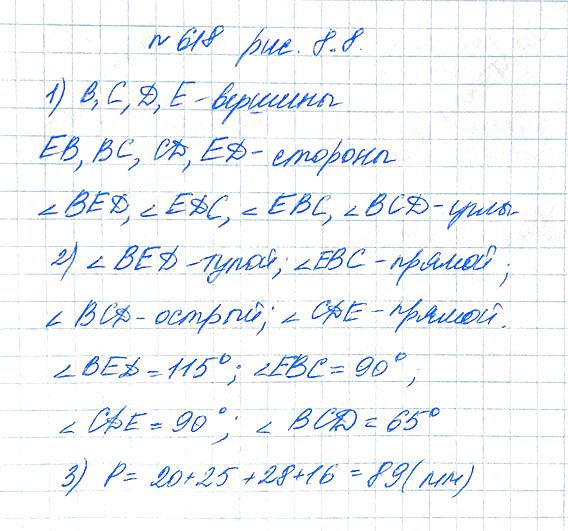 № 618 рис. 8.8.
1) B, C, D, E - вершины
EB, BC, CD, ED - стороны
∠BED, ∠EDC, ∠EBC, ∠BCD - углы
2) ∠BED - тупой; ∠EBC - прямой;
∠BCD - острый; ∠CDE - прямой.
∠BED = 115°; ∠EBC = 90°;
∠CDE = 90°; ∠BCD = 65°
3) P = 20 + 25 + 28 + 16 = 89 (мм)